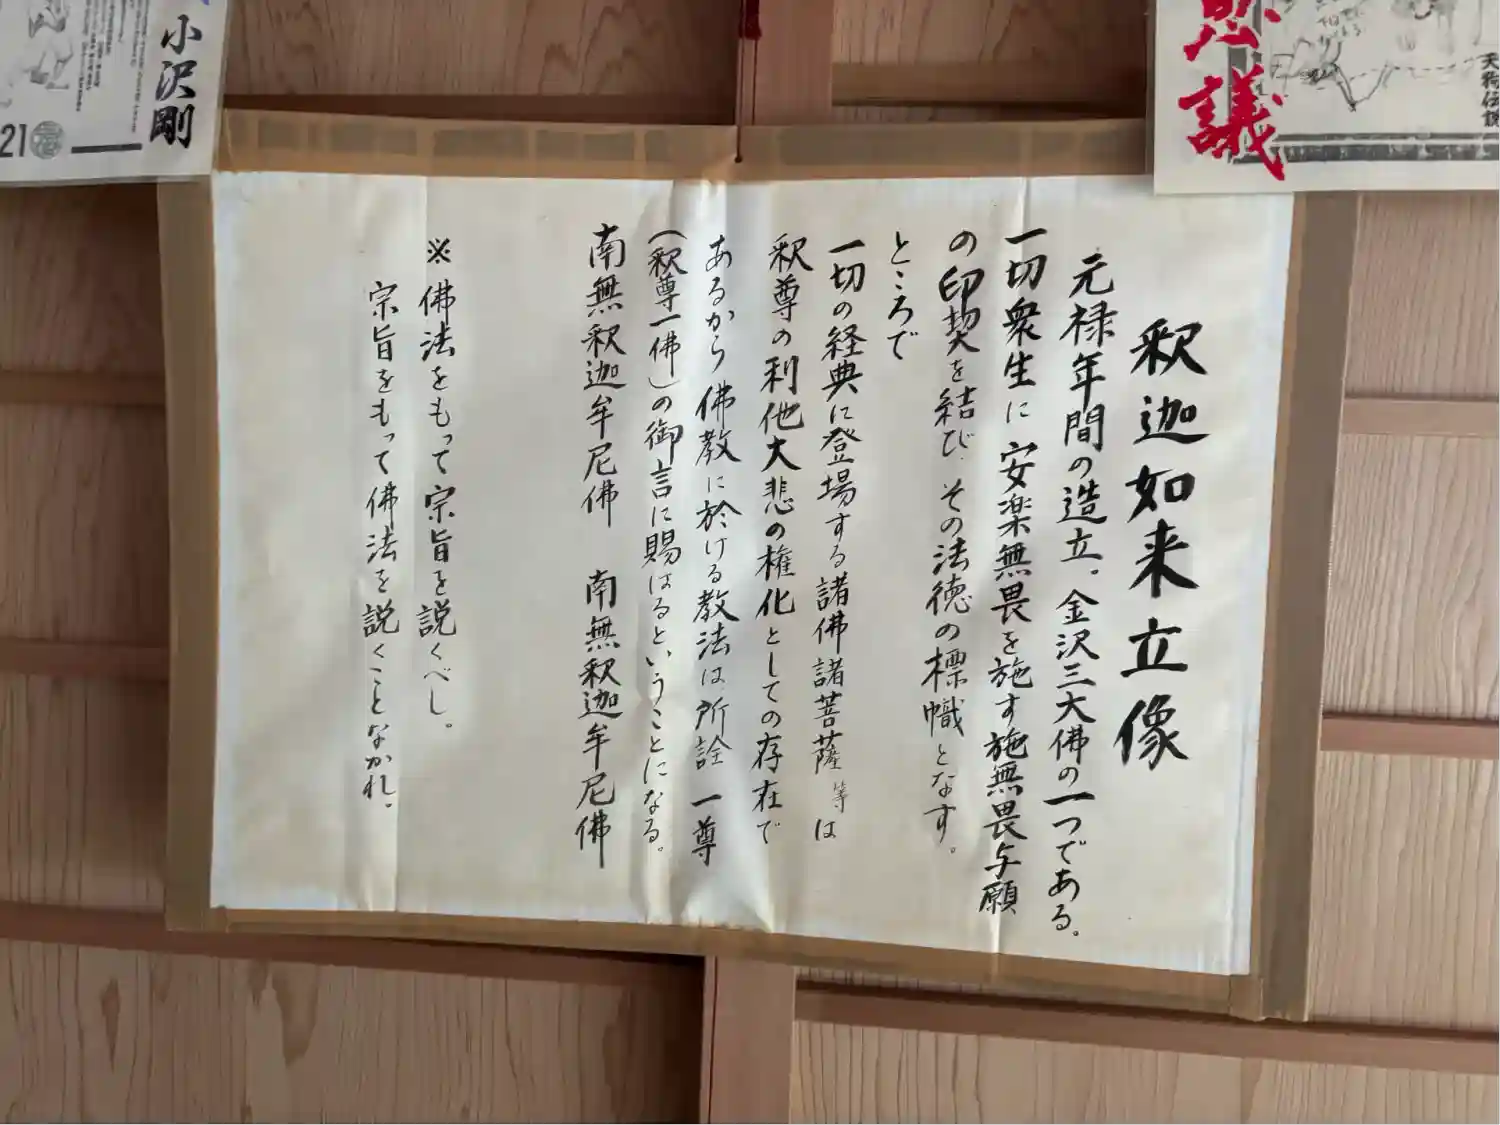 釈迦如来立像
元禄年間の造立。金沢三大佛の一つである。
一切衆生に安楽無畏を施す施無畏与願
の印契を結び、その法徳の標幟となす。
ところで
一切の経典に登場する諸佛諸菩薩等は
釈尊の利他大悲の権化としての存在で
あるから佛教に於ける教法は所詮一尊
(釈尊一佛)の御言に賜はるということになる。
南無釈迦牟尼佛 南無釈迦牟尼佛
※佛法をもって宗旨を説くべし。
宗旨をもって佛法を説くことなかれ。
小沢剛
21
議
天狗伝説